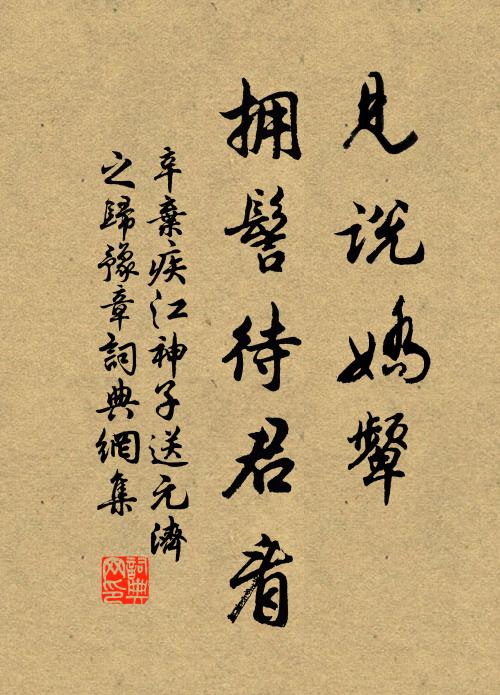 見說嬌顰
拥髻待君看
辛棄疾江神子送元濟
之歸豫章詞典網集
詞典
网印